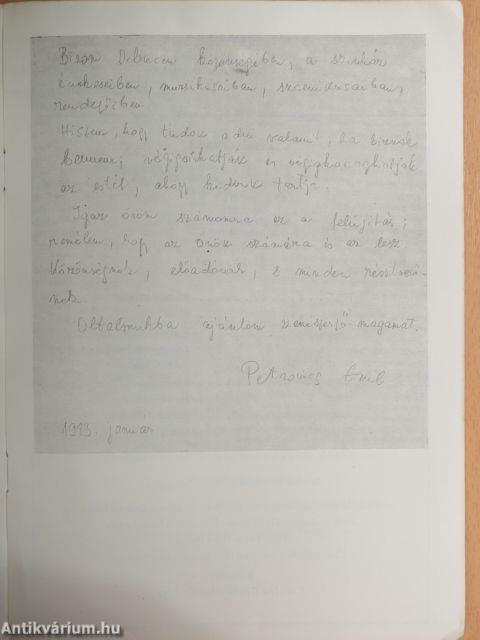 Bízom Debrecen közönségében, a színház
énekeseiben, muzsikusaiban, szcenikusaiban,
rendezőiben.
Hiszem, hogy tudok adni valamit, ha bíznak
bennem; végigsírhatják és végigkacaghatják
az estét, ahogy kedvük tartja.
Igaz öröm számomra ez a felújítás;
remélem, hogy az Önök számára is az lesz.
Közönségnek, előadónak, s minden résztvevő-
nek.
Oltalmukba ajánlom zeneszerző-magamat.
Petrovics Emil
január
Antikvárium.hu